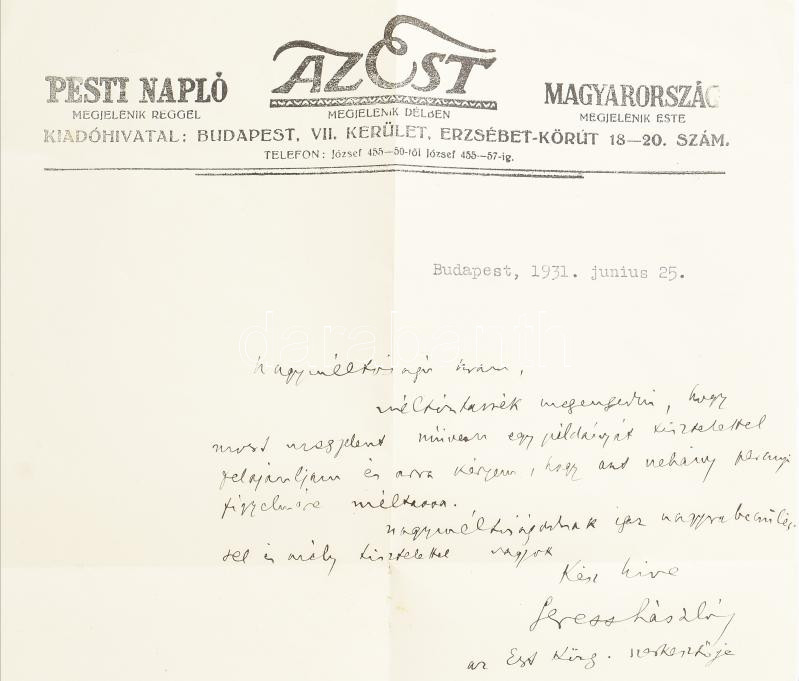 AZ EST
PESTI NAPLÓ
MEGJELENIK REGGEL
MEGJELENIK DÉLBEN
MAGYARORSZÁG
MEGJELENIK ESTE
KIADÓHIVATAL: BUDAPEST, VII. KERÜLET, ERZSÉBET-KÖRÚT 18—20. SZÁM.
TELEFON: József 455—50-től József 455—57-ig.
Budapest, 1931. junius 25.
darabanth
Nagyméltóságú Uram,
méltóztassék megengedni, hogy
most megjelent művem egy példányát tisztelettel
felajánljam és arra kérjem, hogy azt néhány percnyi
figyelmére méltassa.
Nagyméltóságodnak igaz nagyrabecsülés-
sel és mély tisztelettel vagyok
Kész híve
László
az Est szerkesztője